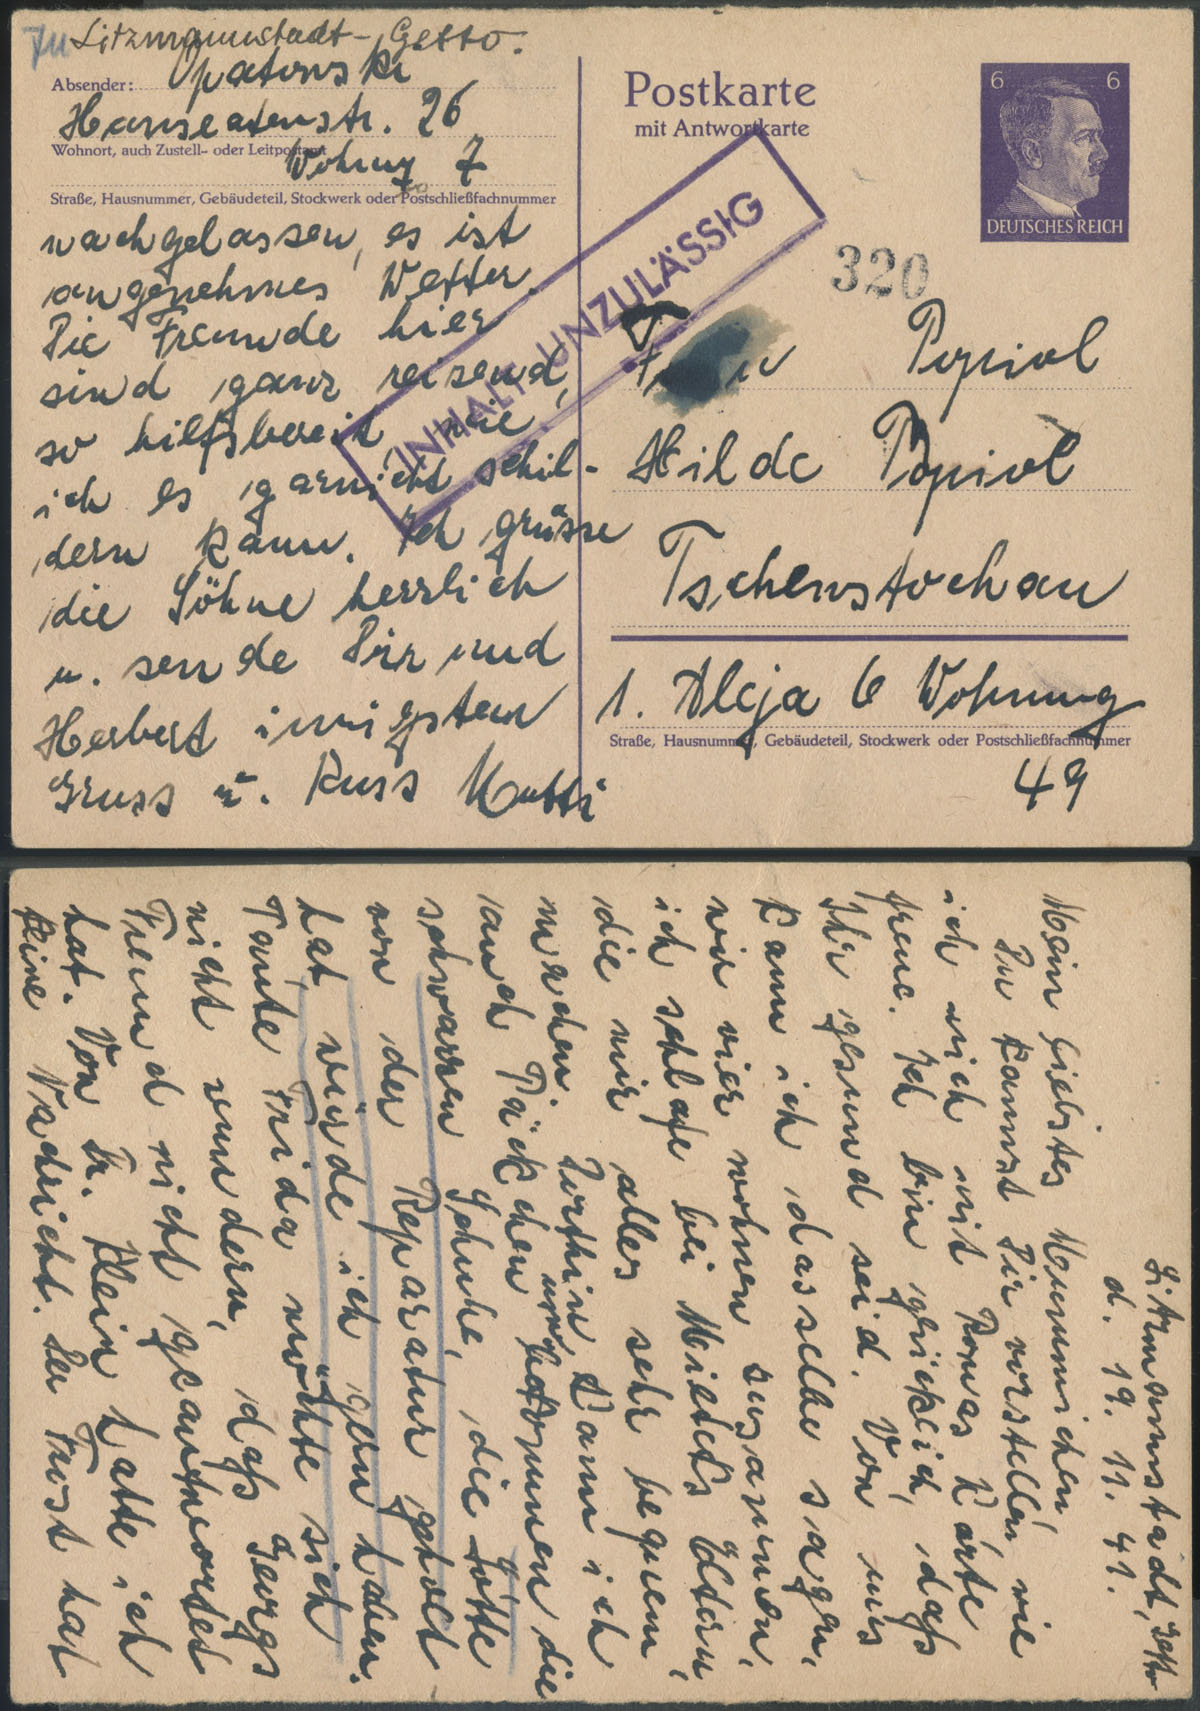 Litzmannstadt-Getto.
Absender: Opatowski
Hanseatenstr. 26
Wohnort, auch Zustell- oder Leitpostamt
Wohnug 7
Straße, Hausnummer, Gebäudeteil, Stockwerk oder Postschließfachnummer
nachgelassen, es ist
angenehmes Wetter.
Die Freunde hier
sind ganz reizend,
so hilfsbereit, wie
ich es garnicht schil-
dern kann. Ich grüsse
die Söhne herrlich
u. sende Dir und
Herbert innigsten
Gruss u. Kuss Mutti
Postkarte
mit Antwortkarte
6 6
DEUTSCHES REICH
INHALT UNZULÄSSIG
320
Popiol
Hilde Popiol
Tschenstochau
1. Aleja 6 Wohnung
Straße, Hausnummer, Gebäudeteil, Stockwerk oder Postschließfachnummer
49
Litzmannstadt, Getto
d. 19. 11. 41.
Mein liebstes
Du kannst Dir vorstellen wie
ich mich mit Romas Karte
freue. Ich bin glücklich, daß
Ihr gesund seid. Von uns
kann ich dasselbe sagen,
wir vier wohnen zusammen,
ich schlafe bei Mietks Eltern,
die mir alles sehr bequem
machen. Zirthin kann ich
auch Päckchen bekommen die
schwarzen Schuhe, die Lotte
von der Reparatur geholt
hat, würde ich gern haben.
Tante Frida möchte sich
nicht wundern, daß Georgs
Freund nicht geantwortet
hat. Von Fr. Klein hatte ich
keine Nachricht. Der Frost hat